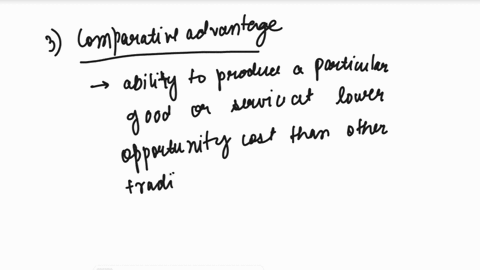 3) Comparative advantage
→ ability to produce a particular
good or servic at lower
opportunity cost than other
tradi